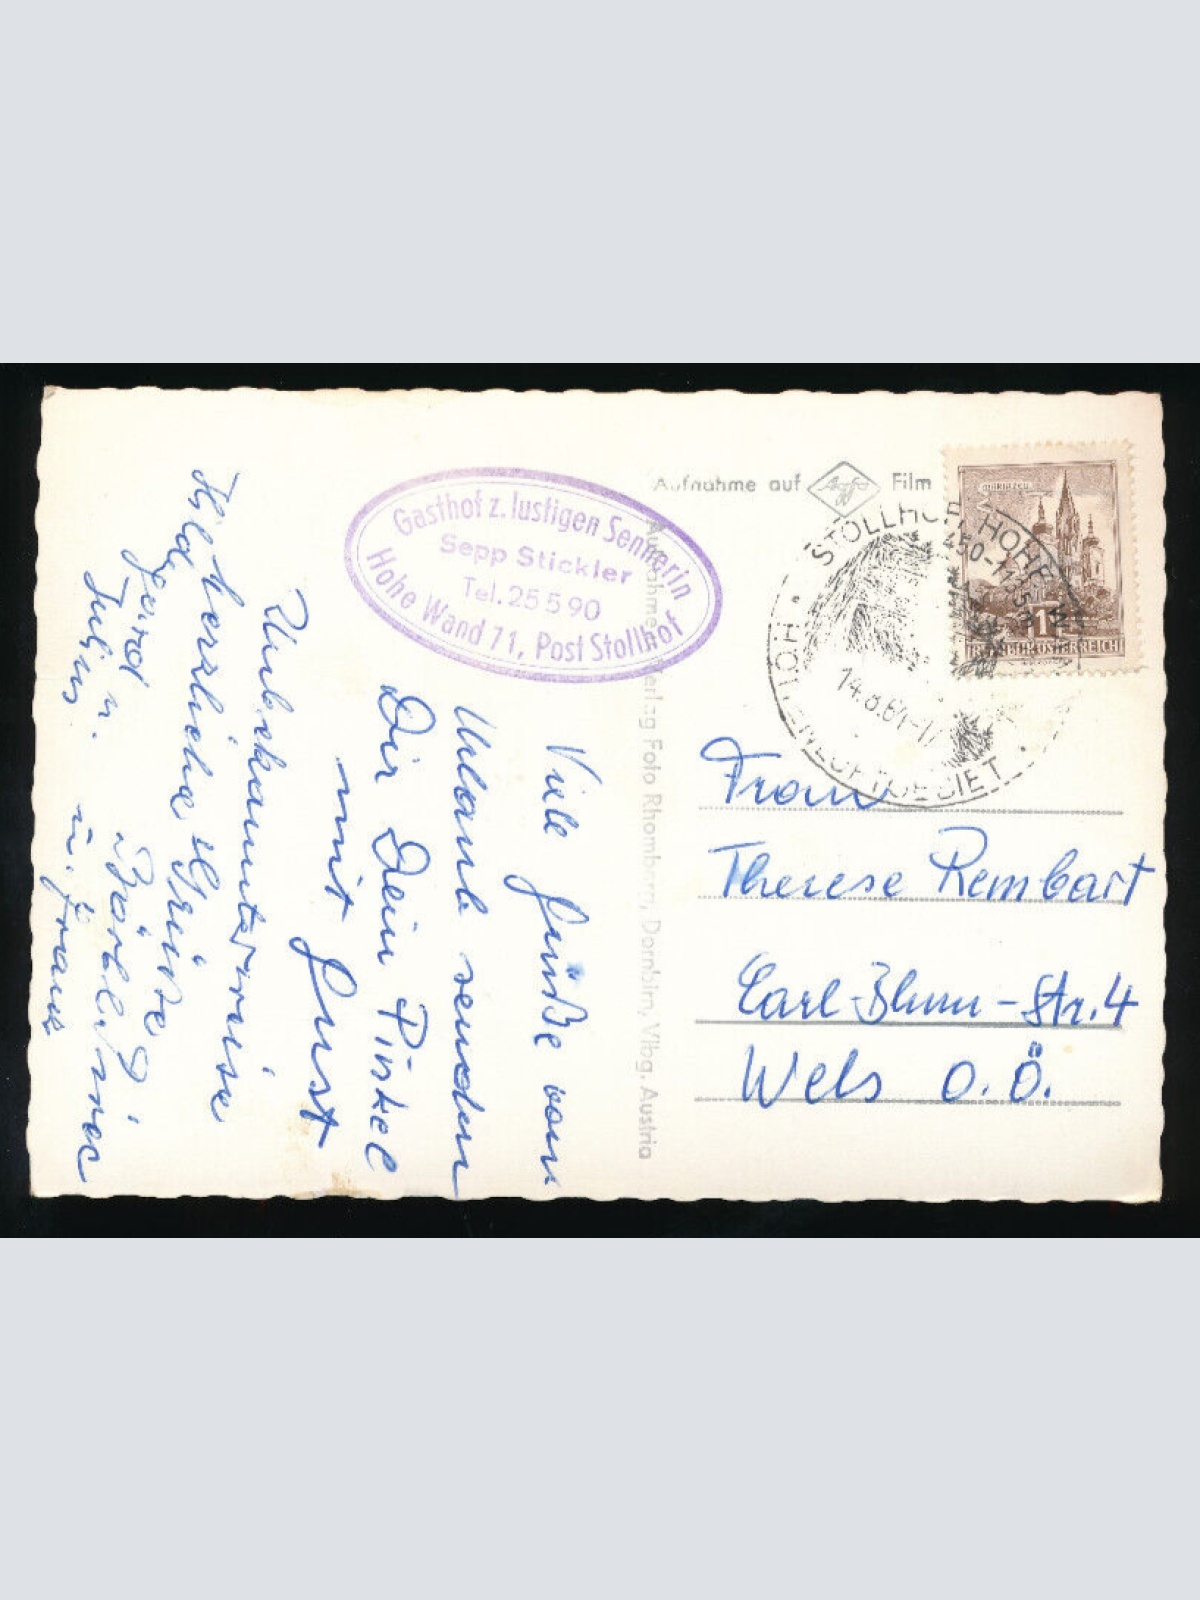 Gasthof z. lustigen Sennerin
Sepp Stickler
Tel. 25 5 90
Hohe Wand 71, Post Stollhof
Aufnahme auf Agfa Film
MARIAZELL
1
REPUBLIK ÖSTERREICH
STOLLHOF, HOHE W
450-1135 m
14.8.61-1
HÖHENLUFTGEBIET
Aufnahme u. Verlag Foto Rhomberg, Dornbirn, Vlbg. Austria
Viele Grüße vom
Urlaub senden
Dir Dein Pinkel
mit Gust
Unbekannterweise
herzliche Grüße
Hilde
Gerd u.
u. Franz
Frau
Therese Rembart
Carl-Blum-Str. 4
Wels O.Ö.